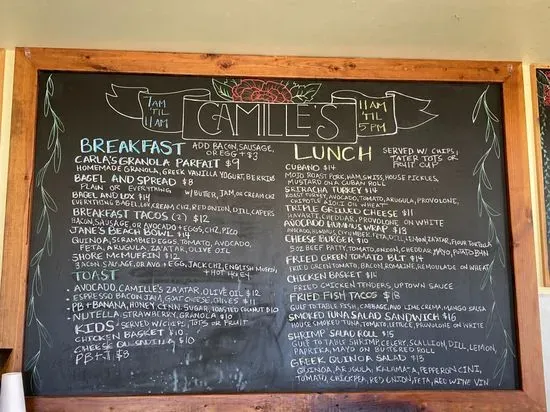 7AM
'TIL
11AM
CAMILLE'S
11AM
'TIL
5PM
BREAKFAST
ADD BACON, SAUSAGE,
OR EGG + $3
CARLA'S GRANOLA PARFAIT $9
HOMEMADE GRANOLA, GREEK VANILLA YOGURT, BERRIES
BAGEL AND SPREAD $8
PLAIN OR EVERYTHING W/ BUTTER, JAM, OR CREAM CHZ
BAGEL AND LOX $14
EVERYTHING BAGEL, CREAM CHZ, RED ONION, DILL, CAPERS
BREAKFAST TACOS (2) $12
BACON, SAUSAGE, OR AVOCADO + EGGS, CHZ, PICO
JANE'S BEACH BOWL $14
QUINOA, SCRAMBLED EGGS, TOMATO, AVOCADO,
FETA, ARUGULA, ZA'ATAR, OLIVE OIL
SHORE MCMUFFIN $12
BACON, SAUSAGE, OR AVO + EGG, JACK CHZ, ENGLISH MUFFIN,
+ HOT HONEY
TOAST
• AVOCADO, CAMILLE'S ZA'ATAR, OLIVE OIL $12
• ESPRESSO BACON JAM, GOAT CHEESE, CHIVES $11
• PB + BANANA, HONEY, CINN. SUGAR, TOASTED COCONUT $10
• NUTELLA, STRAWBERRY, GRANOLA $10
KIDS SERVED W/ CHIPS, TOTS OR FRUIT
CHICKEN BASKET $10
CHEESE QUESADILLA $10
PB + J $8
LUNCH
SERVED W/ CHIPS,
TATER TOTS OR
FRUIT CUP
CUBANO $14
MOJO ROAST PORK, HAM, SWISS, HOUSE PICKLES,
MUSTARD ON A CUBAN ROLL
SRIRACHA TURKEY $14
ROAST TURKEY, AVOCADO, TOMATO, ARUGULA, PROVOLONE,
CHIPOTLE AIOLI ON WHEAT
TRIPLE GRILLED CHEESE $11
HAVARTI, CHEDDAR, PROVOLONE ON WHITE
AVOCADO HUMMUS WRAP $13
AVOCADO, HUMMUS, CUCUMBER, FETA, DILL, LEMON, ZA'ATAR, FLOUR TORTILLA
CHEESE BURGER $16
5OZ BEEF PATTY, TOMATO, ONION, CHEDDAR, MAYO, POTATO BUN
FRIED GREEN TOMATO BLT $14
FRIED GREEN TOMATO, BACON, ROMAINE, REMOULADE ON WHEAT
CHICKEN BASKET $14
FRIED CHICKEN TENDERS, UPTOWN SAUCE
FRIED FISH TACOS $18
GULF TO TABLE FISH, CABBAGE, AND LIME CREMA, MANGO SALSA
SMOKED TUNA SALAD SANDWICH $16
HOUSE SMOKED TUNA, TOMATO, LETTUCE, PROVOLONE ON WHITE
SHRIMP SALAD ROLL $15
GULF TO TABLE SHRIMP, CELERY, SCALLION, DILL, LEMON,
PAPRIKA, MAYO ON BUTTERED ROLL
GREEK QUINOA SALAD $13
QUINOA, ARUGULA, KALAMATA, PEPPERONCINI,
TOMATO, CHICKPEA, RED ONION, FETA, RED WINE VIN